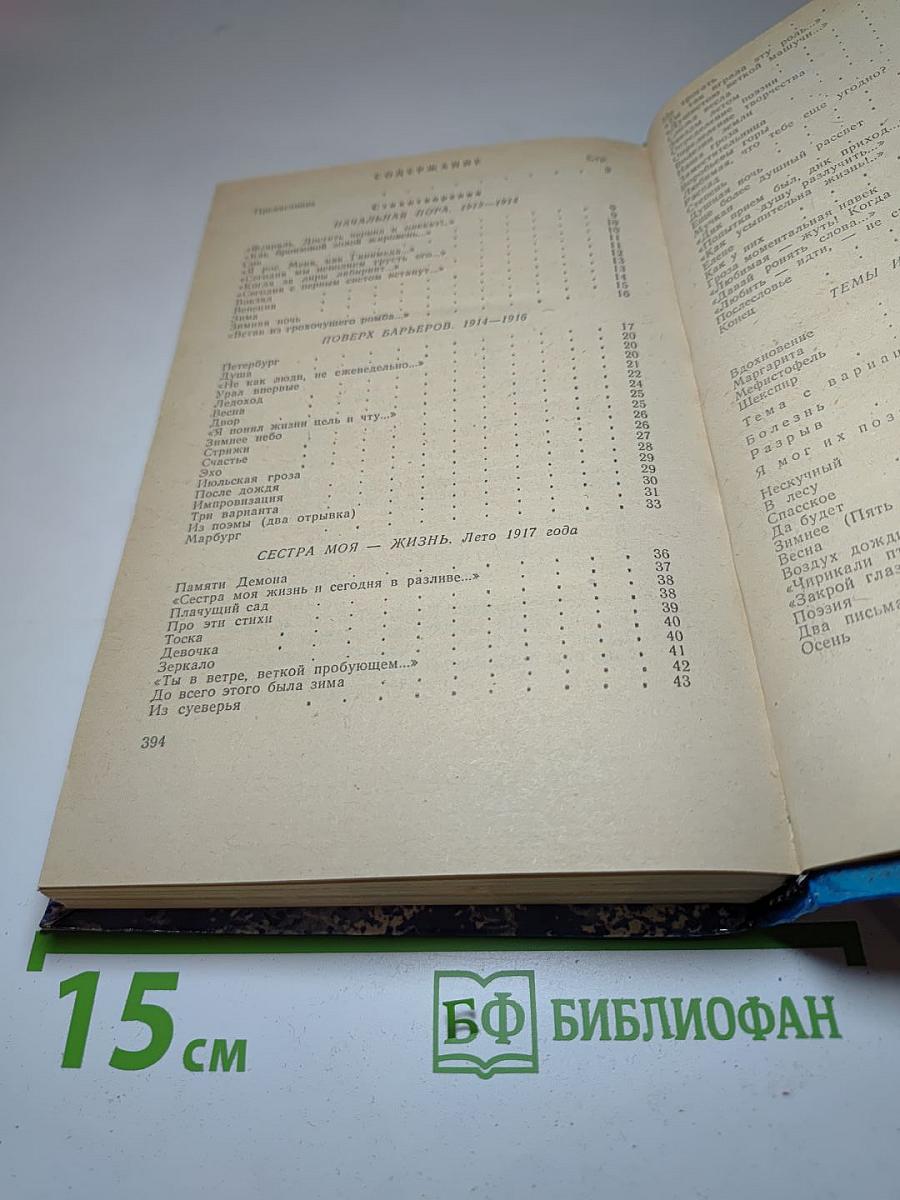 СОДЕРЖАНИЕ
Стр.
Предисловие 9
Стихотворения
НАЧАЛЬНАЯ ПОРА. 1912—1914
«Февраль. Достать чернил и плакать!..» 9
«Как бронзовой золой жаровень...» 9
Сон 10
«Я рос. Меня, как Ганимеда...»
«Сегодня мы исполним грусть его...»
«Когда за лиры лабиринт...» 12
«Сегодня с первым светом встанут...» 13
Вокзал 13
Венеция 14
Зима 15
Зимняя ночь 16
«Встав из грохочущего ромба...»
ПОВЕРХ БАРЬЕРОВ. 1914—1916
Петербург 17
Душа 20
«Не как люди, не еженедельно...» 20
Урал впервые 20
Ледоход 21
Весна 22
Двор 24
«Я понял жизни цель и чту...» 25
Зимнее небо 25
Стрижи 26
Счастье 26
Эхо 27
Июльская гроза 28
После дождя 29
Импровизация 29
Три варианта 30
Из поэмы (два отрывка) 31
Марбург 33
СЕСТРА МОЯ — ЖИЗНЬ. Лето 1917 года
Памяти Демона 36
«Сестра моя жизнь и сегодня в разливе...» 37
Плачущий сад 38
Про эти стихи 38
Тоска 39
Девочка 40
Зеркало 40
«Ты в ветре, веткой пробующем...» 41
До всего этого была зима 42
Из суеверья 43
394
играла эту роль...»
веткой машучи...»
летом
поэзии
творчества
земли
гроза
Воробьевы горы
что тебе еще угодно?
Распад
ночь
Еще более душный рассвет
прием был, дик приход...
«Попытка душу разлучить...»
«Как усыпительна жизнь!..»
Елене
Как у них
Гроза моментальная навек
«Любимая — жуть! Когда
«Давай ронять слова...»
«Любить — идти, — не с
Послесловье
Конец
ТЕМЫ И
Вдохновение
Маргарита
Мефистофель
Шекспир
Тема с вариац
Болезнь
Разрыв
Я мог их поз
Нескучный
В лесу
Спасское
Да будет
Зимнее (Пять
Весна
Воздух дожди
«Чирикали пт
«Закрой глаз
Поэзия
Два письма
Осень
15 см
БФ БИБЛИОФАН